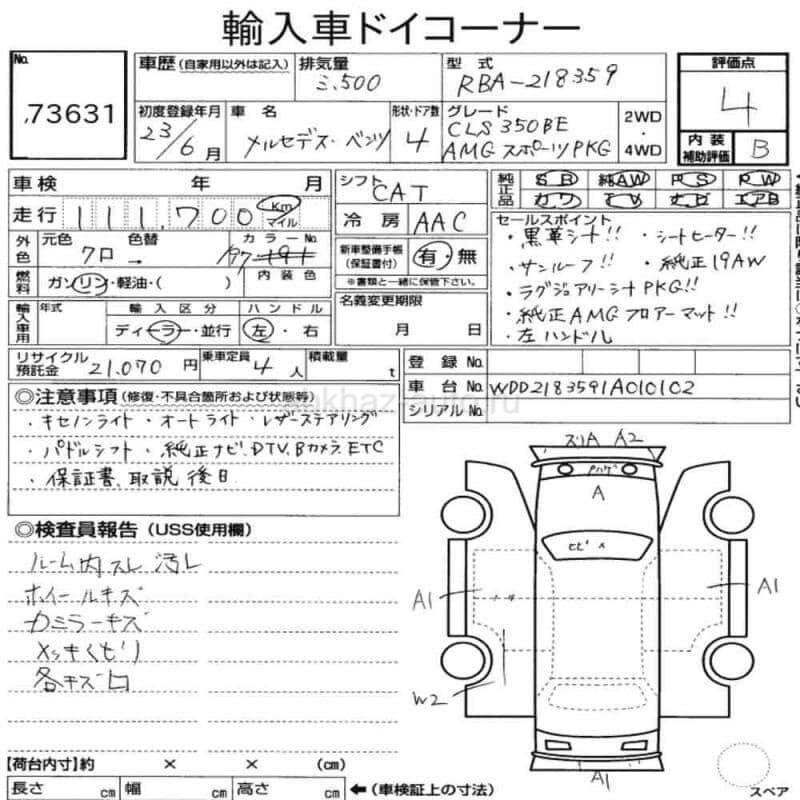 輸入車ドイコーナー
No. 73631
車歴 (自家用以外は記入)
排気量 3,500
型式 RBA-218359
評価点 4
初度登録年月 23/6月
車名 メルセデス・ベンツ
形状・ドア数 4
グレード CLS350BE
AMGスポーツPKG
2WD・4WD
内装補助評価 B
車検 年 月
シフト CAT
純正品 SR 純AW PS PW
カワ TV ナビ エアB
走行 111,700 Km マイル
冷房 AAC
外色 元色 クロ 色替 → カラーNo. 197 191
新車整備手帳(保証書付) 有・無
※書類と一緒に保管して下さい。
燃料 ガソリン・軽油・( ) 内装色
名義変更期限
月 日
セールスポイント
・黒革シート!! ・シートヒーター!!
・サンルーフ!! ・純正19AW
・ラグジュアリーシートPKG!!
・純正AMGフロアーマット!!
・左ハンドル
輸入車用 年式 輸入区分 ディーラー・並行 ハンドル 左・右
リサイクル預託金 21,070 円 乗車定員 4 人 積載量 t
登録No.
車台No. WDD2183591A010102
シリアルNo.
◎注意事項 (修復・不具合箇所および状態等)
abkhaz-auto.ru
・キセノンライト・オートライト・レザーステアリング
・パドルシフト・純正ナビ.DTV.Bカメラ.ETC
・保証書、取説 後日
◎検査員報告 (USS使用欄)
ルーム内スレ 汚レ
ホイールキズ
カミラーキズ
メッキくもり
各キズ凹
スリA A2
A
ヒビ×
A1
A1
W2
A1
スペア
【荷台内寸】約 × × (cm)
長さ cm 幅 cm 高さ cm ←(車検証上の寸法)